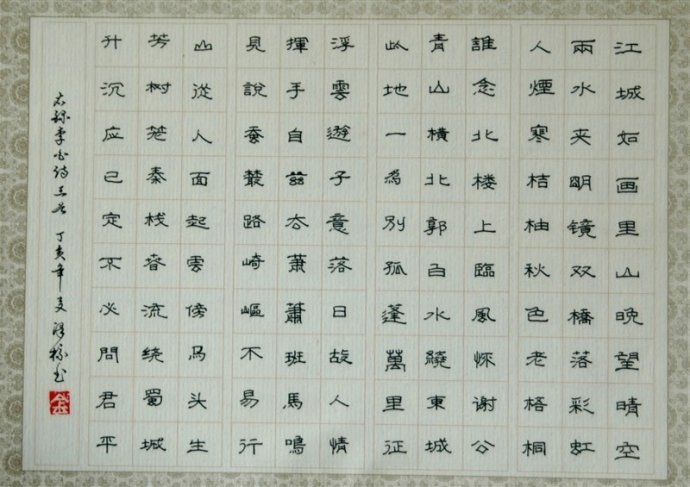 江城如画里山晚望晴空
兩水夹明镜双橋落彩虹
人煙寒桔柚秋色老格桐
誰念北楼上臨風怀谢公
青山横北郭白水繞東城
此地一為別孤蓬萬里征
浮雲遊子意落日故人情
揮手自兹去蕭蕭班馬鳴
見說蚕叢路崎嶇不易行
山從人面起雲傍马头生
芳树笼秦栈春流绕蜀城
升沉应已定不必問君平
右録李白诗三首 丁亥年夏 书